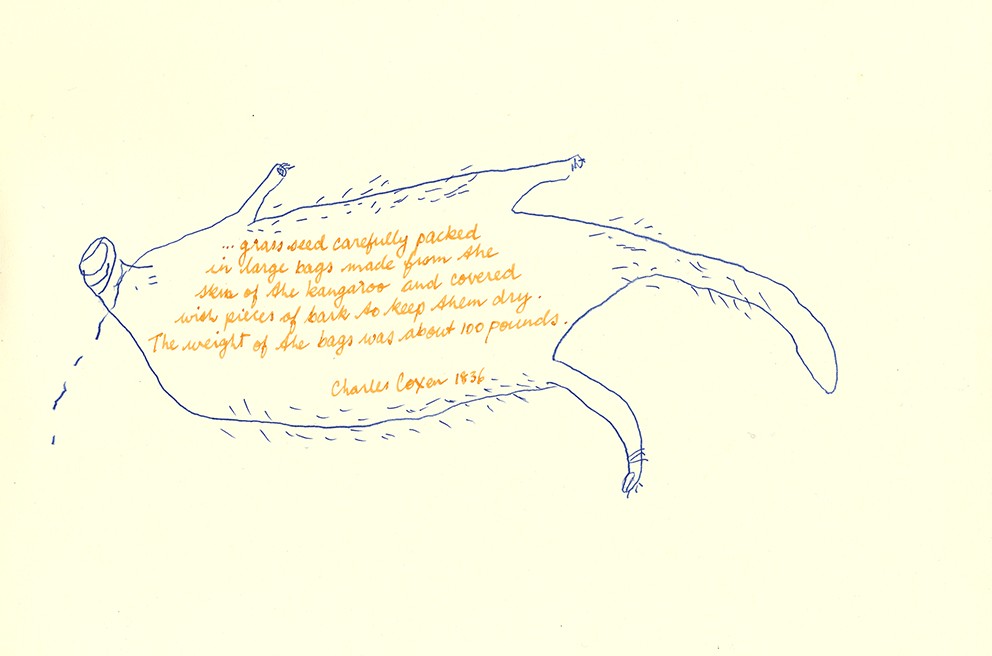 ... grass seed carefully packed
in large bags made from the
skin of the kangaroo and covered
with pieces of bark to keep them dry.
The weight of the bags was about 100 pounds.
Charles Coxen 1836